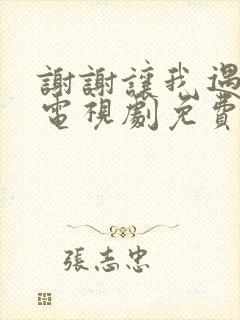 謝謝讓我遇
電視劇免費
張志忠